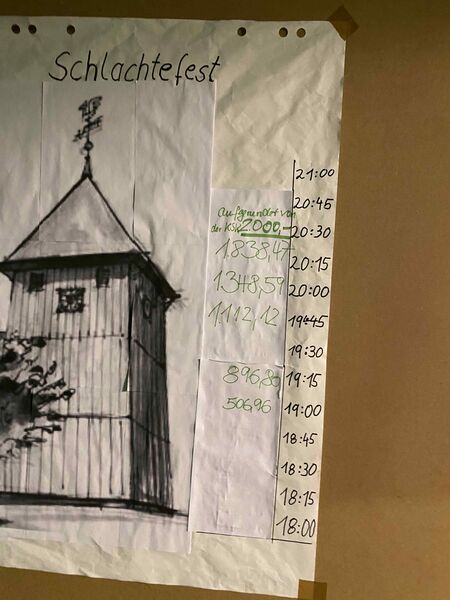 Schlachtefest
21:00
20:45
aufgerundet von
der KSK 2000,-
20:30
1.838,47
20:15
1.348,59
20:00
1.112,12
19:45
19:30
896,80
19:15
506,96
19:00
18:45
18:30
18:15
18:00